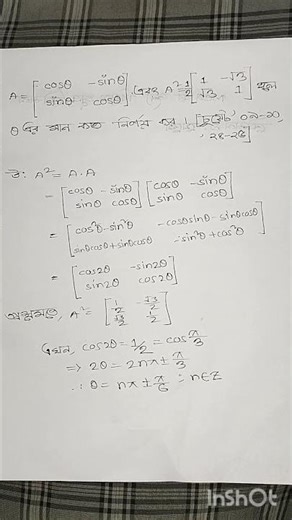 A = [cosθ -sinθ
sinθ cosθ], এবং A² = 1/2 [1 -√3
√3 1] হলে
θ এর মান কত নির্ণয় কর। [চুয়েট' ০৯-১০,
উ: A² = A·A
= [cosθ -sinθ
sinθ cosθ] [cosθ -sinθ
sinθ cosθ]
= [cos²θ-sin²θ -cosθsinθ-sinθcosθ
sinθcosθ+sinθcosθ -sin²θ+cos²θ]
= [cos2θ -sin2θ
sin2θ cos2θ]
A² = [1/2 -√3/2
√3/2 1/2]
এখন, cos2θ = 1/2 = cos π/3
⇒ 2θ = 2nπ ± π/3
∴ θ = nπ ± π/6 ; n∈Z
InShOt